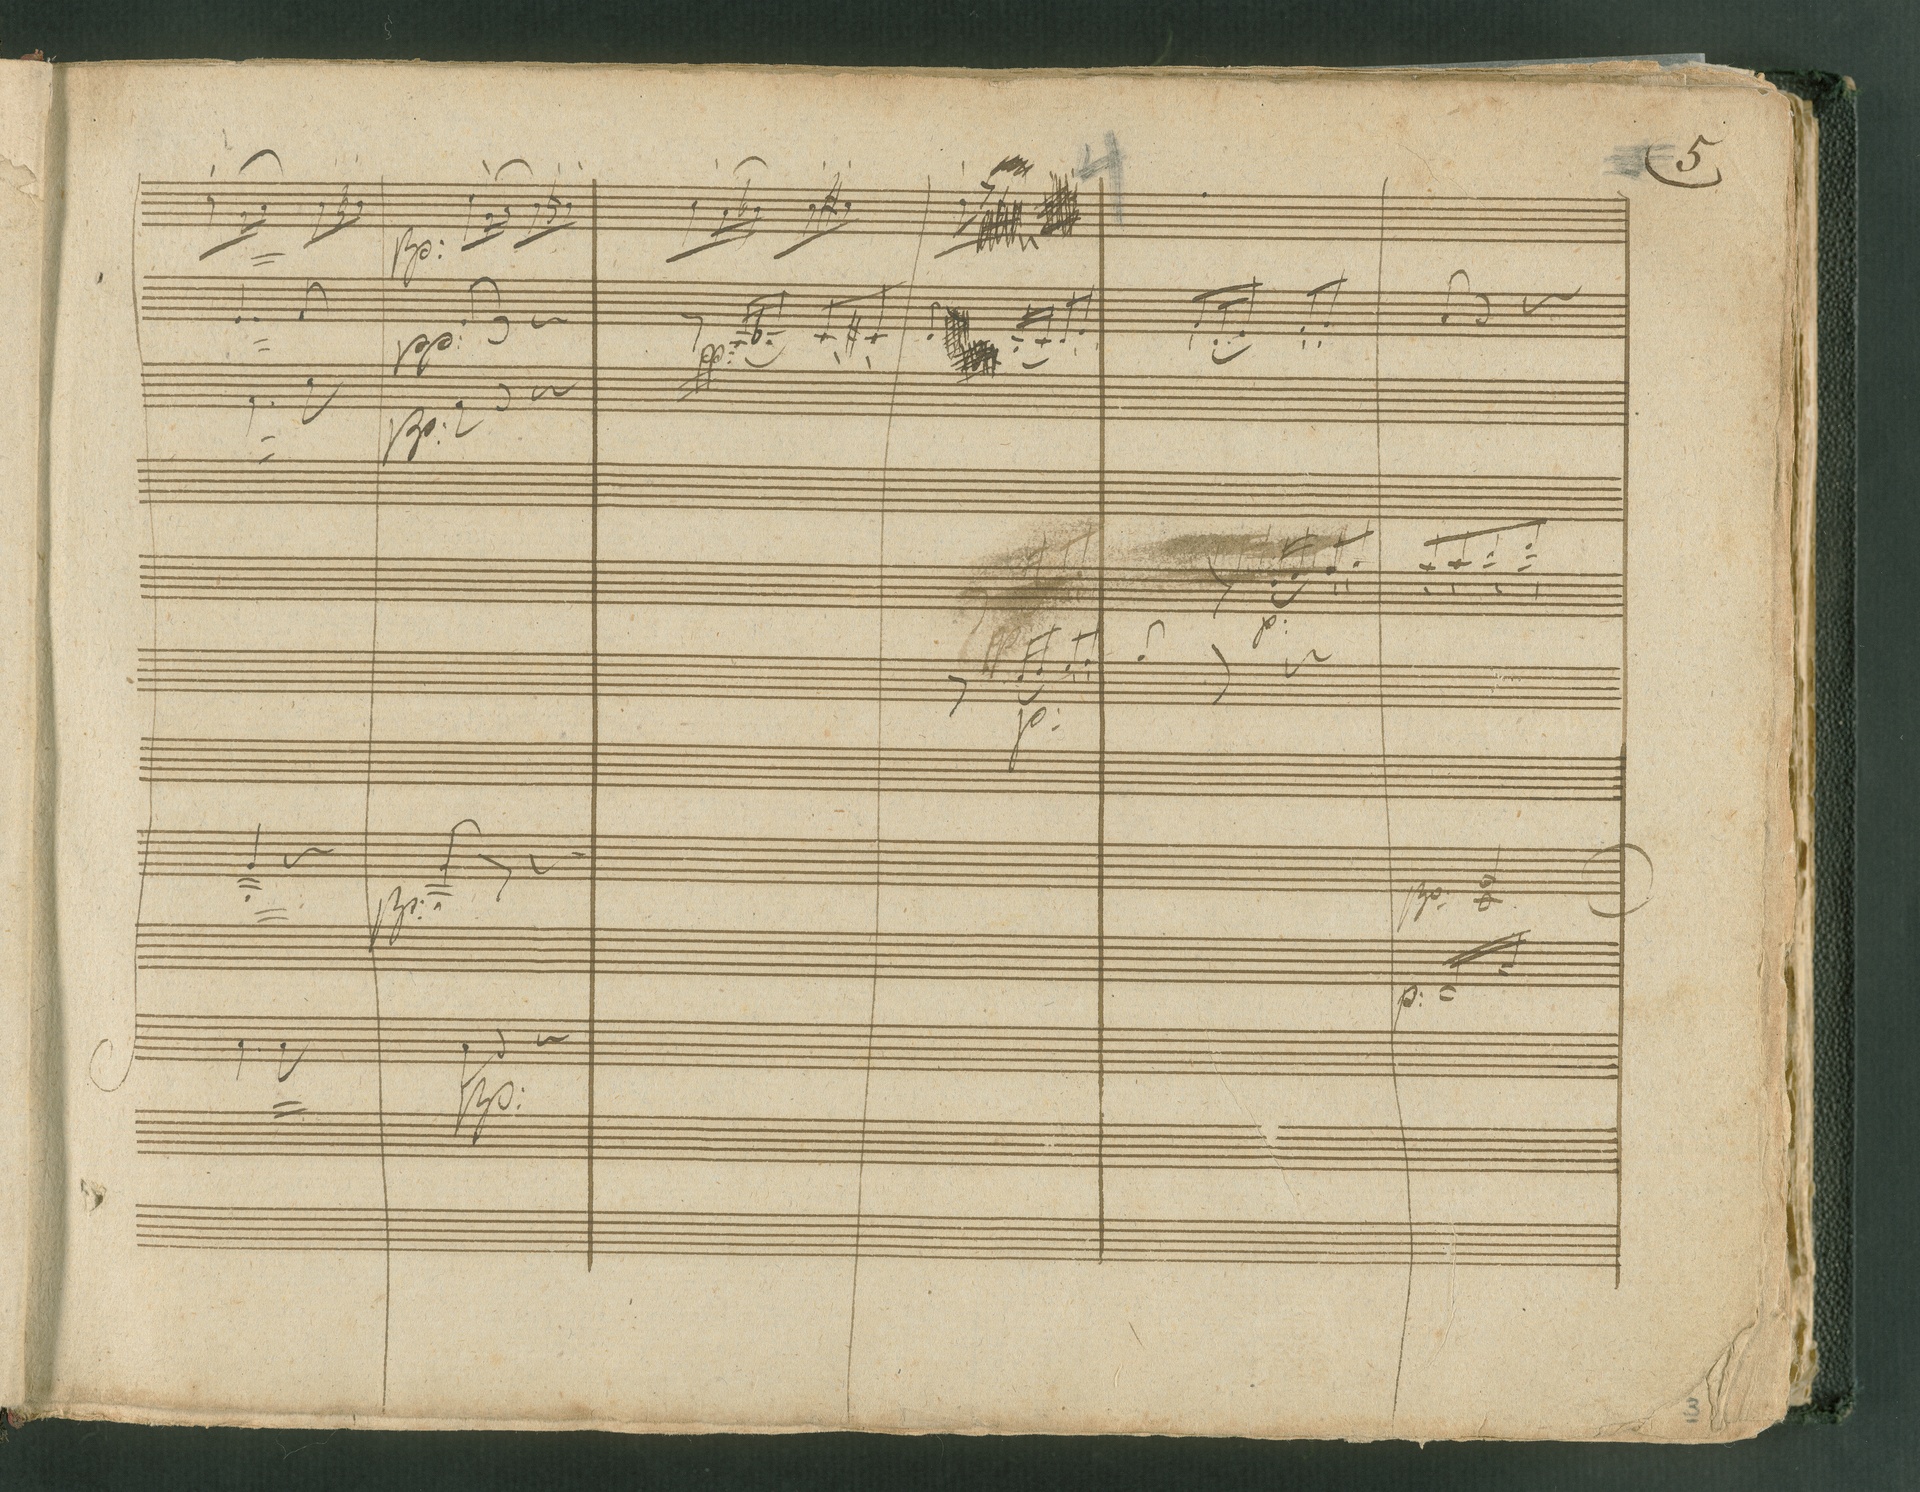 4
5
pp:
pp:
pp:
pp:
p:
p:
pp:
pp:
p:
pp:
3